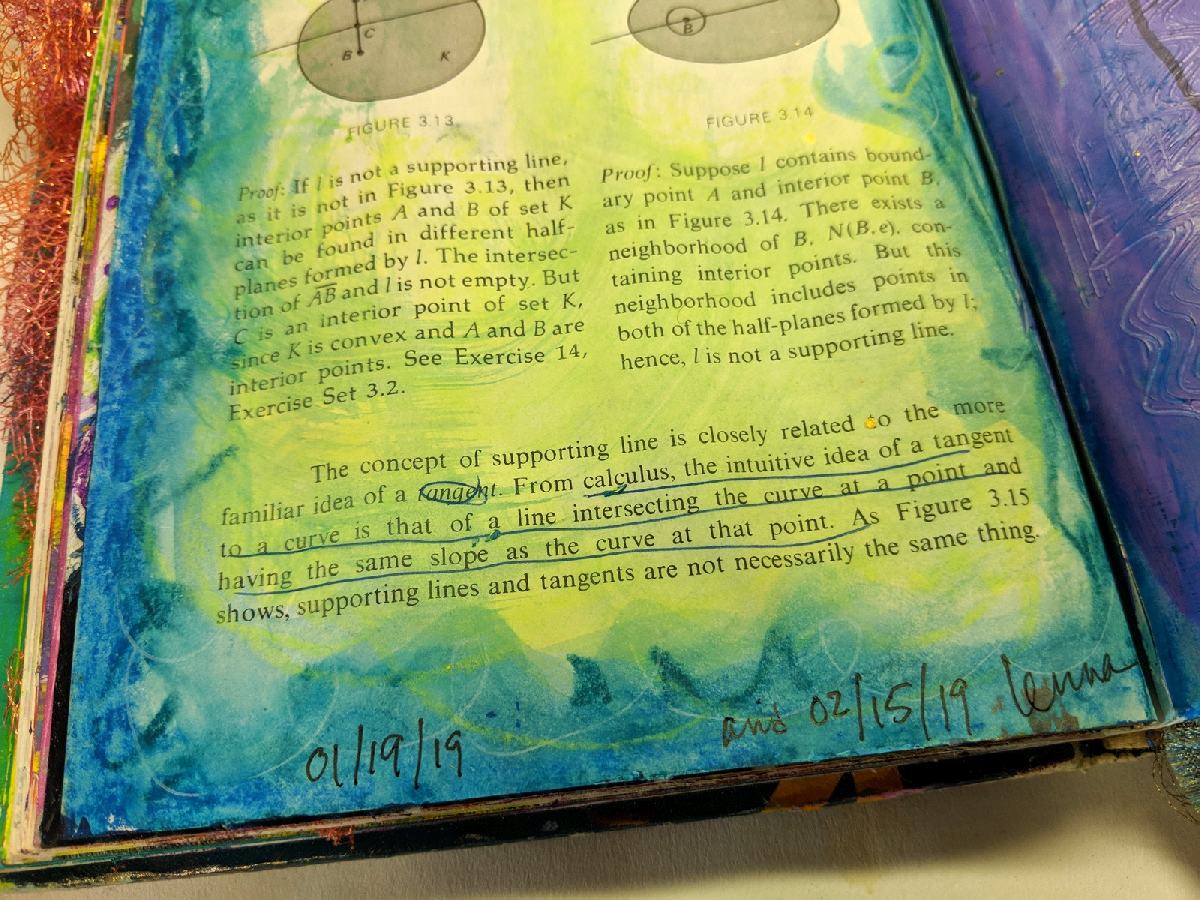 C
B
K
B
FIGURE 3.13
FIGURE 3.14
Proof: If l is not a supporting line,
as it is not in Figure 3.13, then
interior points A and B of set K
can be found in different half-
planes formed by l. The intersec-
tion of AB and l is not empty. But
C is an interior point of set K,
since K is convex and A and B are
interior points. See Exercise 14,
Exercise Set 3.2.
Proof: Suppose l contains bound-
ary point A and interior point B,
as in Figure 3.14. There exists a
neighborhood of B, N(B,e), con-
taining interior points. But this
neighborhood includes points in
both of the half-planes formed by l;
hence, l is not a supporting line.
The concept of supporting line is closely related to the more
familiar idea of a tangent. From calculus, the intuitive idea of a tangent
to a curve is that of a line intersecting the curve at a point and
having the same slope as the curve at that point. As Figure 3.15
shows, supporting lines and tangents are not necessarily the same thing.
01/19/19
and 02/15/19 lenna